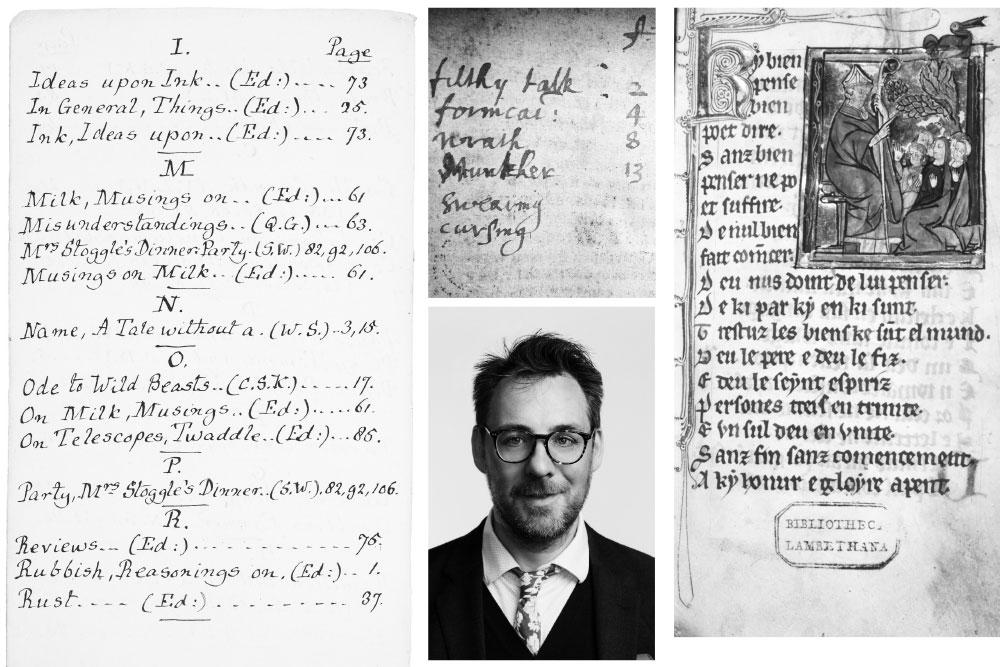 I.
Page
Ideas upon Ink..(Ed:).... 73
In General, Things..(Ed:).... 25.
Ink, Ideas upon..(Ed:).... 73.
M
Milk, Musings on.. (Ed:)... 61
Misunderstandings..(Q.G.)... 63.
Mrs Stoggle's Dinner Party.(S.W.) 82,92,106.
Musings on Milk..(Ed:).... 61.
N.
Name, A Tale without a. (W.S.)..3,15.
O.
Ode to Wild Beasts..(C.S.K.).....17.
On Milk, Musings..(Ed:).....61.
On Telescopes, Twaddle..(Ed:)...85.
P.
Party, Mrs Stoggle's Dinner..(S.W.).82,92,106.
R.
Reviews... (Ed:)............75.
Rubbish, Reasonings on, (Ed:)..1.
Rust.... (Ed:)......... 37.
filthy talk : 2
fornicat: 4
wrath 8
13
swearing
cursing
Ky bien
pense
bien
poet dire.
Sanz bien
penser ne po
et suffire.
De nul bien
fait comencer.
Deu nus doint de lui penser.
De ki par ky en ki sunt.
Trestuz les biens ke sunt el mund.
Deu le pere e deu le fiz.
E deu le seynt espiriz
Persones treis en trinite.
E un sul deu en unite.
Sanz fin sanz comencement.
A ky honur e gloyre apent
BIBLIOTHEC.
LAMBETHANA